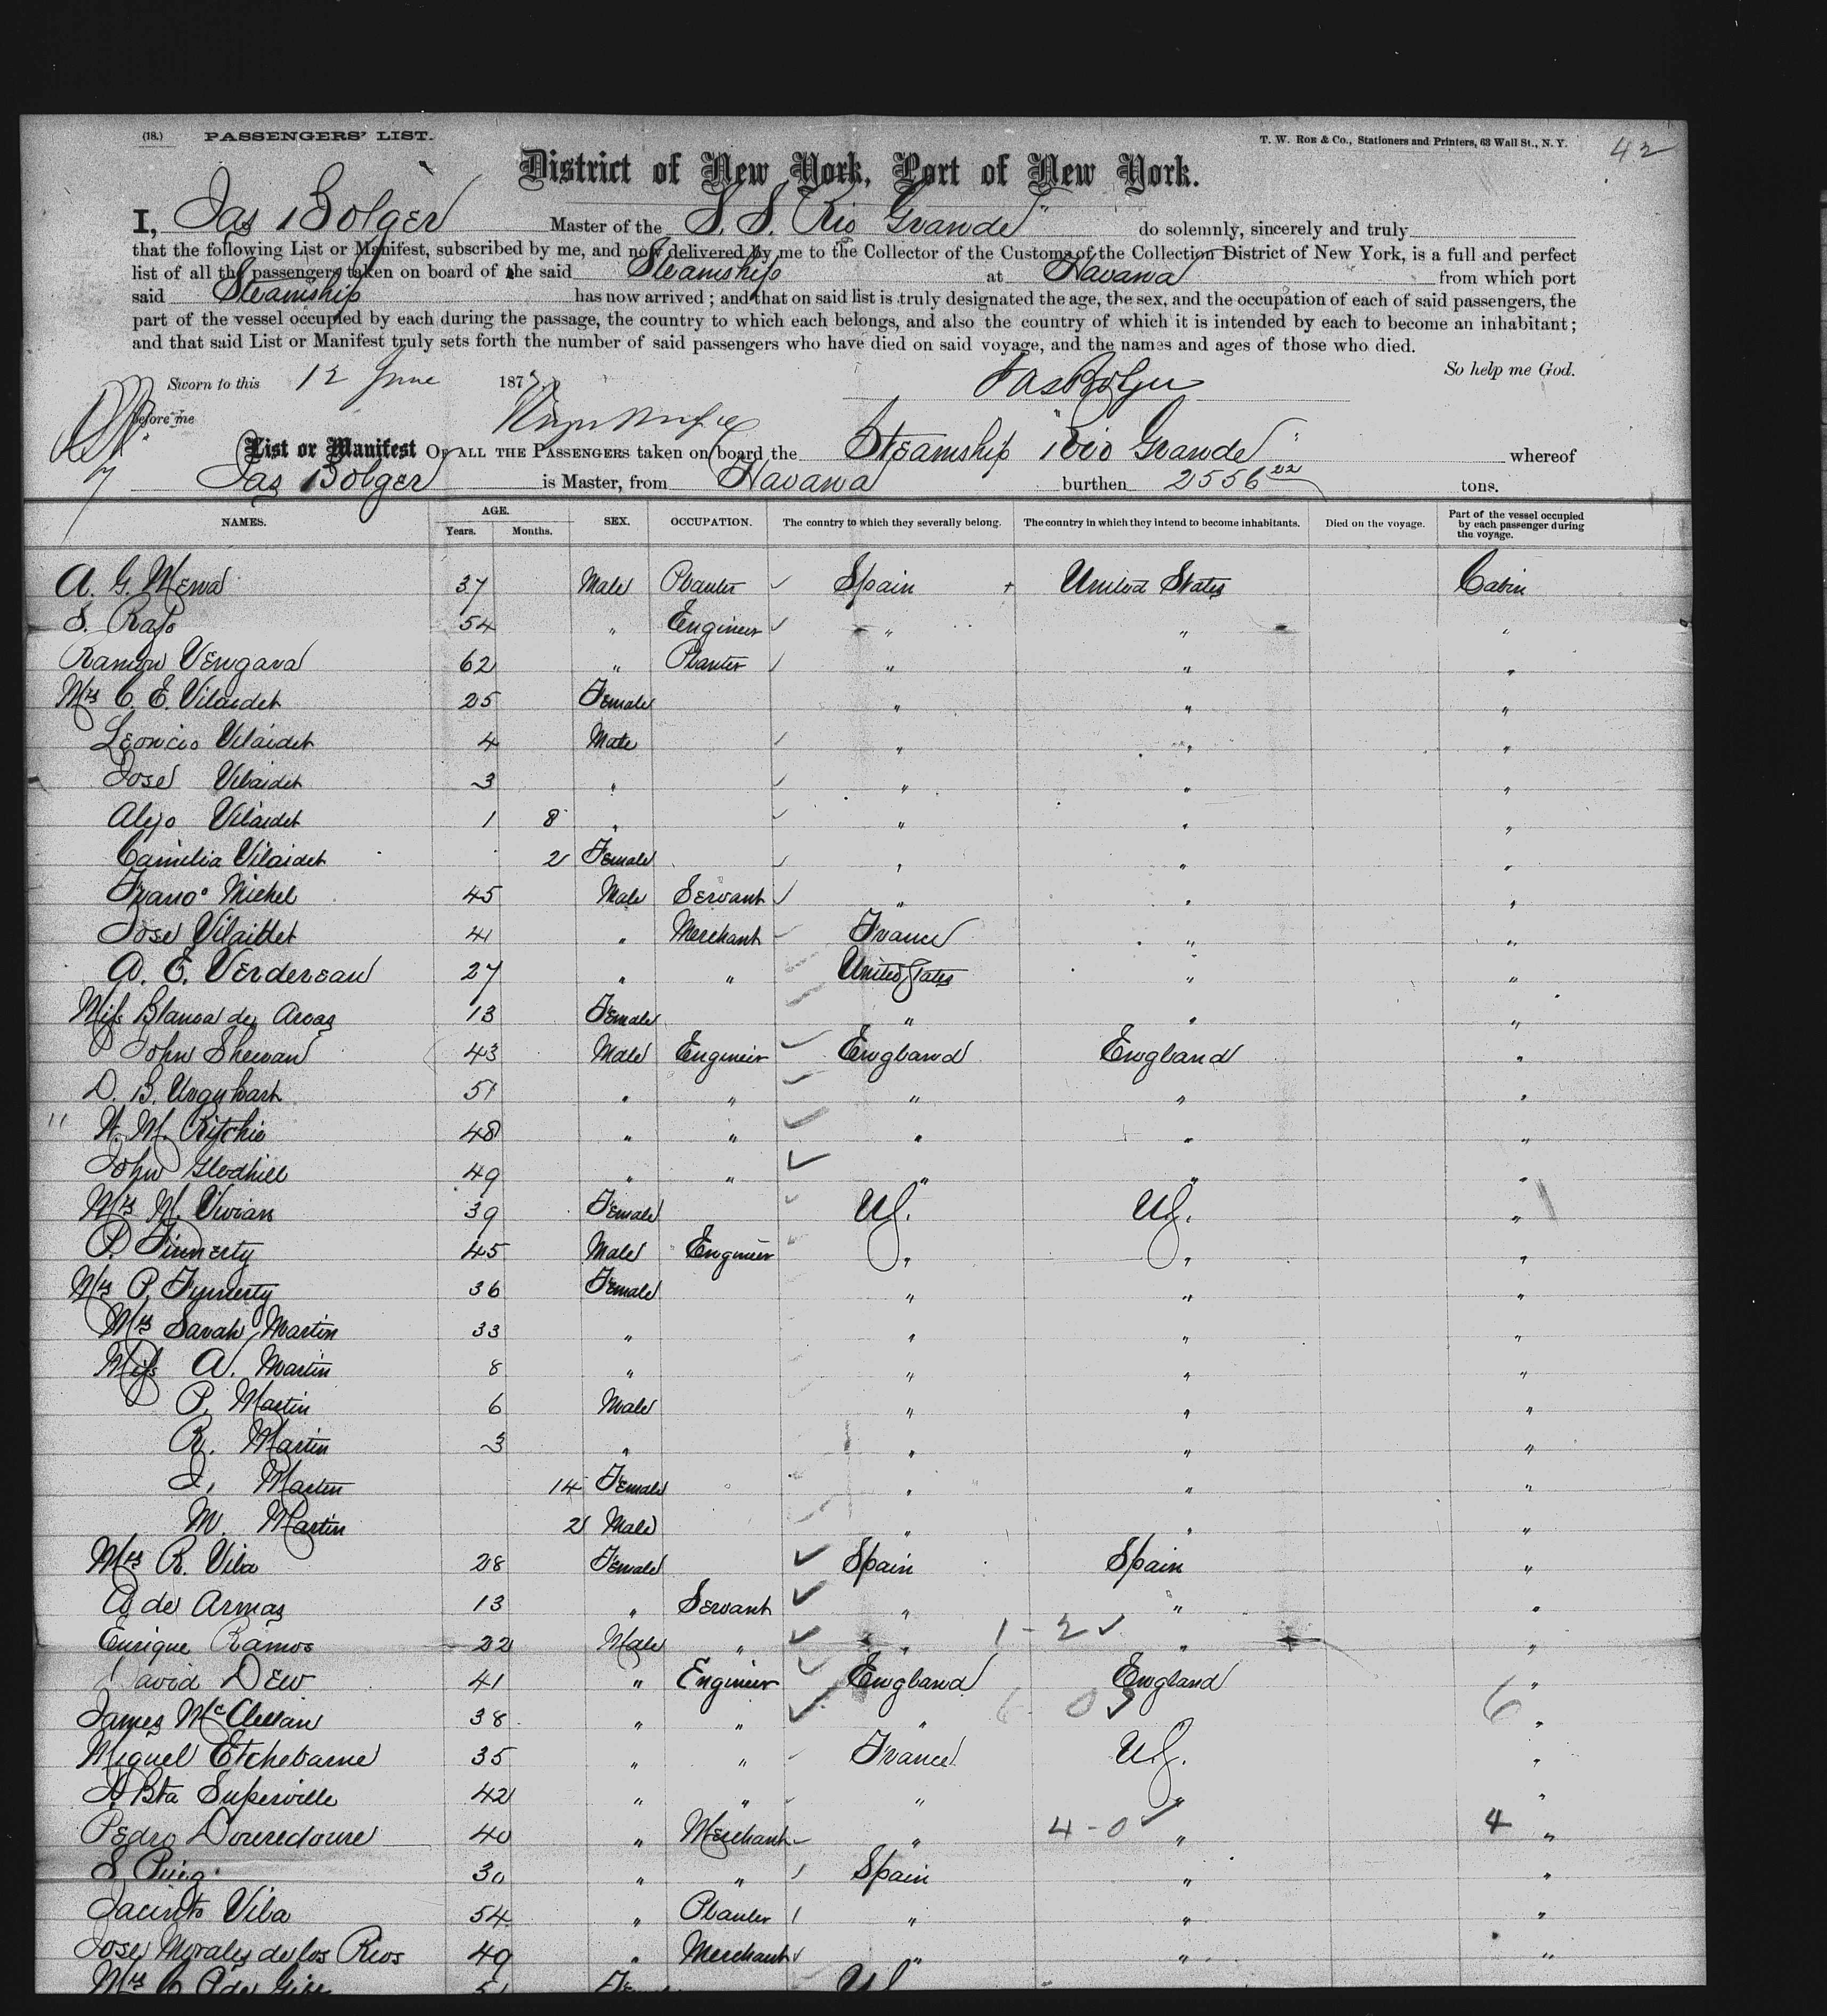 (18.) PASSENGERS' LIST. T. W. ROE & Co., Stationers and Printers, 63 Wall St., N. Y. 42
District of New York, Port of New York.
I, Jas Bolger Master of the S. S. "Rio Grande" do solemnly, sincerely and truly
that the following List or Manifest, subscribed by me, and now delivered by me to the Collector of the Customs of the Collection District of New York, is a full and perfect
list of all the passengers taken on board of the said Steamship at Havana from which port
said Steamship has now arrived; and that on said list is truly designated the age, the sex, and the occupation of each of said passengers, the
part of the vessel occupied by each during the passage, the country to which each belongs, and also the country of which it is intended by each to become an inhabitant;
and that said List or Manifest truly sets forth the number of said passengers who have died on said voyage, and the names and ages of those who died.
So help me God.
Sworn to this 12 June 187 Jas Bolger
Before me
List or Manifest OF ALL THE PASSENGERS taken on board the Steamship "Rio Grande" whereof
Jas Bolger is Master, from Havana burthen 2556 22 tons.
NAMES. AGE. Years. Months. SEX. OCCUPATION. The country to which they severally belong. The country in which they intend to become inhabitants. Died on the voyage. Part of the vessel occupied by each passenger during the voyage.
A. G. Mena 37 Male Planter Spain United States Cabin
S. 54 " Engineer " " "
Ramon Vengara 62 " Planter " " "
Mrs C. E. Vilaidet 25 Female " " "
Leoncio Vilaidet 4 Male " " "
Jose Vilaidet 3 " " " "
Alejo Vilaidet 1 8 " " " "
Camilia Vilaidet 2 Female " " "
Franco Michel 45 Male Servant " " "
Jose Vilaidet 41 " Merchant France " "
A. E. Verdereau 27 " " United States " "
Miss Blanca de Arcas 13 Female " " "
John Shewan 43 Male Engineer England England "
D. B. Urquhart 51 " " " " "
W. M. Ritchie 48 " " " " "
John Gledhill 49 " " " " "
Mrs M. Vivian 39 Female US. US. "
P. Finnerty 45 Male Engineer " " "
Mrs P. Fynnerty 36 Female " " "
Mrs Sarah Martin 33 " " " "
Miss A. Martin 8 " " " "
P. Martin 6 Male " " "
R. Martin 3 " " " "
J. Martin 14 Female " " "
M. Martin 2 Male " " "
Mrs R. Vila 28 Female Spain Spain "
A. de Armas 13 " Servant " " "
Enrique Ramos 22 Male " " 1-2 " "
David Dew 41 " Engineer England England "
James McClellan 38 " " " 6-0 " 6 "
Miguel Etchebarne 35 " " France US. "
J. Bta Superville 42 " " " " "
Pedro Douredoure 40 " Merchant " 4-0 " 4 "
S. Puig 30 " " Spain " "
Jacinto Vila 54 " Planter " " "
Jose Morales de los Rios 49 " Merchant " " "
Mrs